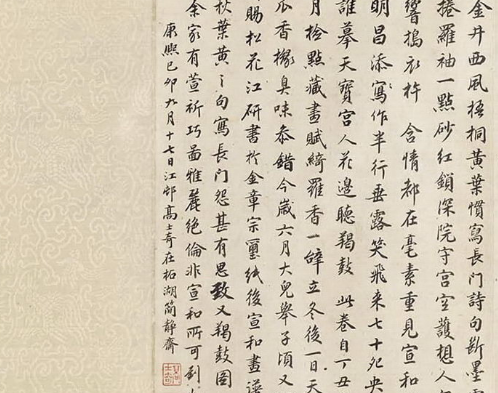 金井西風梧桐黃葉慣寫長門詩句斷墨
捲羅袖一點砂紅鎖深院守宮空護想人
響搗衣杵 含情都在毫素重見宣和
明昌添寫作半行垂露笑飛來七十死央
誰摹天寶宮人花邊聽羯鼓 此卷自丁丑
月檢點藏畫賦綺羅香一闋立冬後一日天
瓜香櫞臭味恭錯今歲六月大兒舉子頃又
賜松花江研書於金章宗璽紙後宣和畫譜
秋葉黃之句寫長門怨甚有思致又羯鼓圖
余家有萱祈巧圖雅麗絕倫非宣和所可到
康熙己卯九月十七日江邨高士奇在柘湖簡靜齋